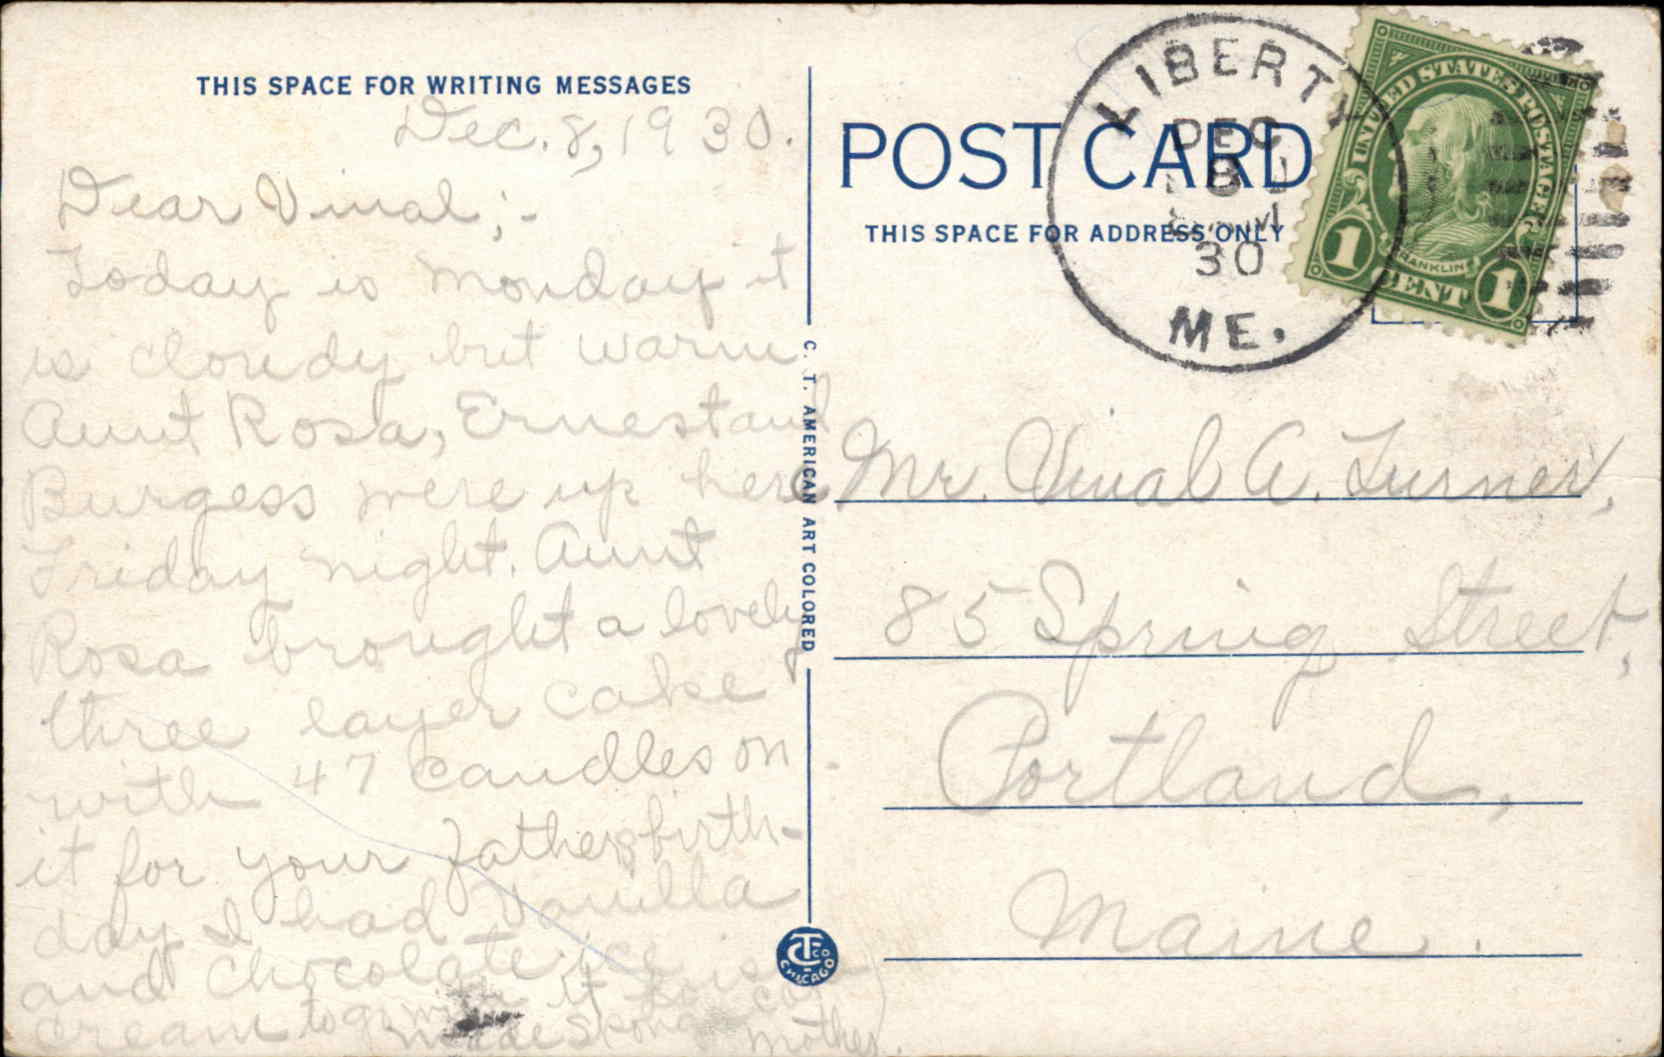 THIS SPACE FOR WRITING MESSAGES
Dec. 8, 1930.
Dear Vinal;-
Today is Monday it
is cloudy but warm
Aunt Rosa, Ernest and
Burgess were up here
Friday night. Aunt
Rosa brought a lovely
three layer cake
with 47 candles on
it for your fathers birth-
day I had Vanilla
and chocolate ice
cream to go with it
made
Mother.
C. T. AMERICAN ART COLORED
CT CO
CHICAGO
POST CARD
THIS SPACE FOR ADDRESS ONLY
LIBERTY
DEC
8
30
ME.
UNITED STATES POSTAGE
FRANKLIN
1 CENT 1
Mr. Vinal A. Turner,
85 Spring Street,
Portland,
Maine.